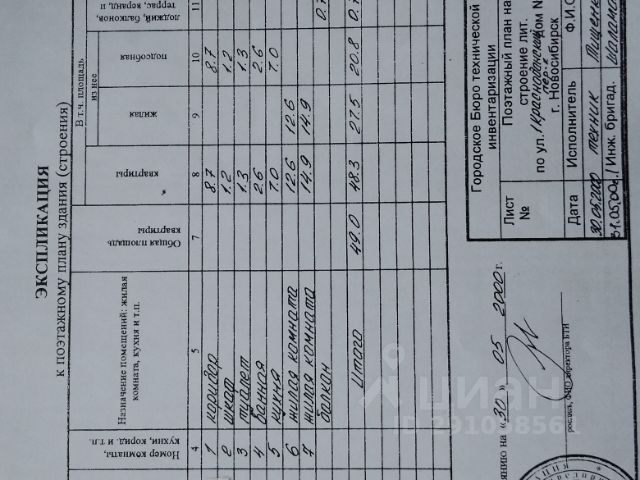 ЭКСПЛИКАЦИЯ
к поэтажному плану здания (строения)
Номер комнаты, кухни, корид. и т.п.
Назначение помещений: жилая комната, кухня и т.п.
Общая площадь квартиры
В т.ч. площадь
из нее
квартиры
жилая
подсобная
лоджий, балконов, террас, веранд, и
4 5 7 8 9 10 11
1 коридор 8.7 8.7
2 шкаф 1.2 1.2
3 туалет 1.3 1.3
4 ванная 2.6 2.6
5 кухня 7.0 7.0
6 жилая комната 12.6 12.6
7 жилая комната 14.9 14.9
балкон 0.7
Итого 49.0 48.3 27.5 20.8 0.7
Городское Бюро технической
инвентаризации
Лист
№
Поэтажный план на
строение лит.
по ул. 1 Краснодонский дом №
пер-к
г. Новосибирск
Дата Исполнитель Ф.И.О
30.05.2000 техник Тищенко
31.05.00г. Инж. бригад.
янию на "30" 05 2000 г.
роспись, ФИО директора БТИ
циан
ID - 291098561